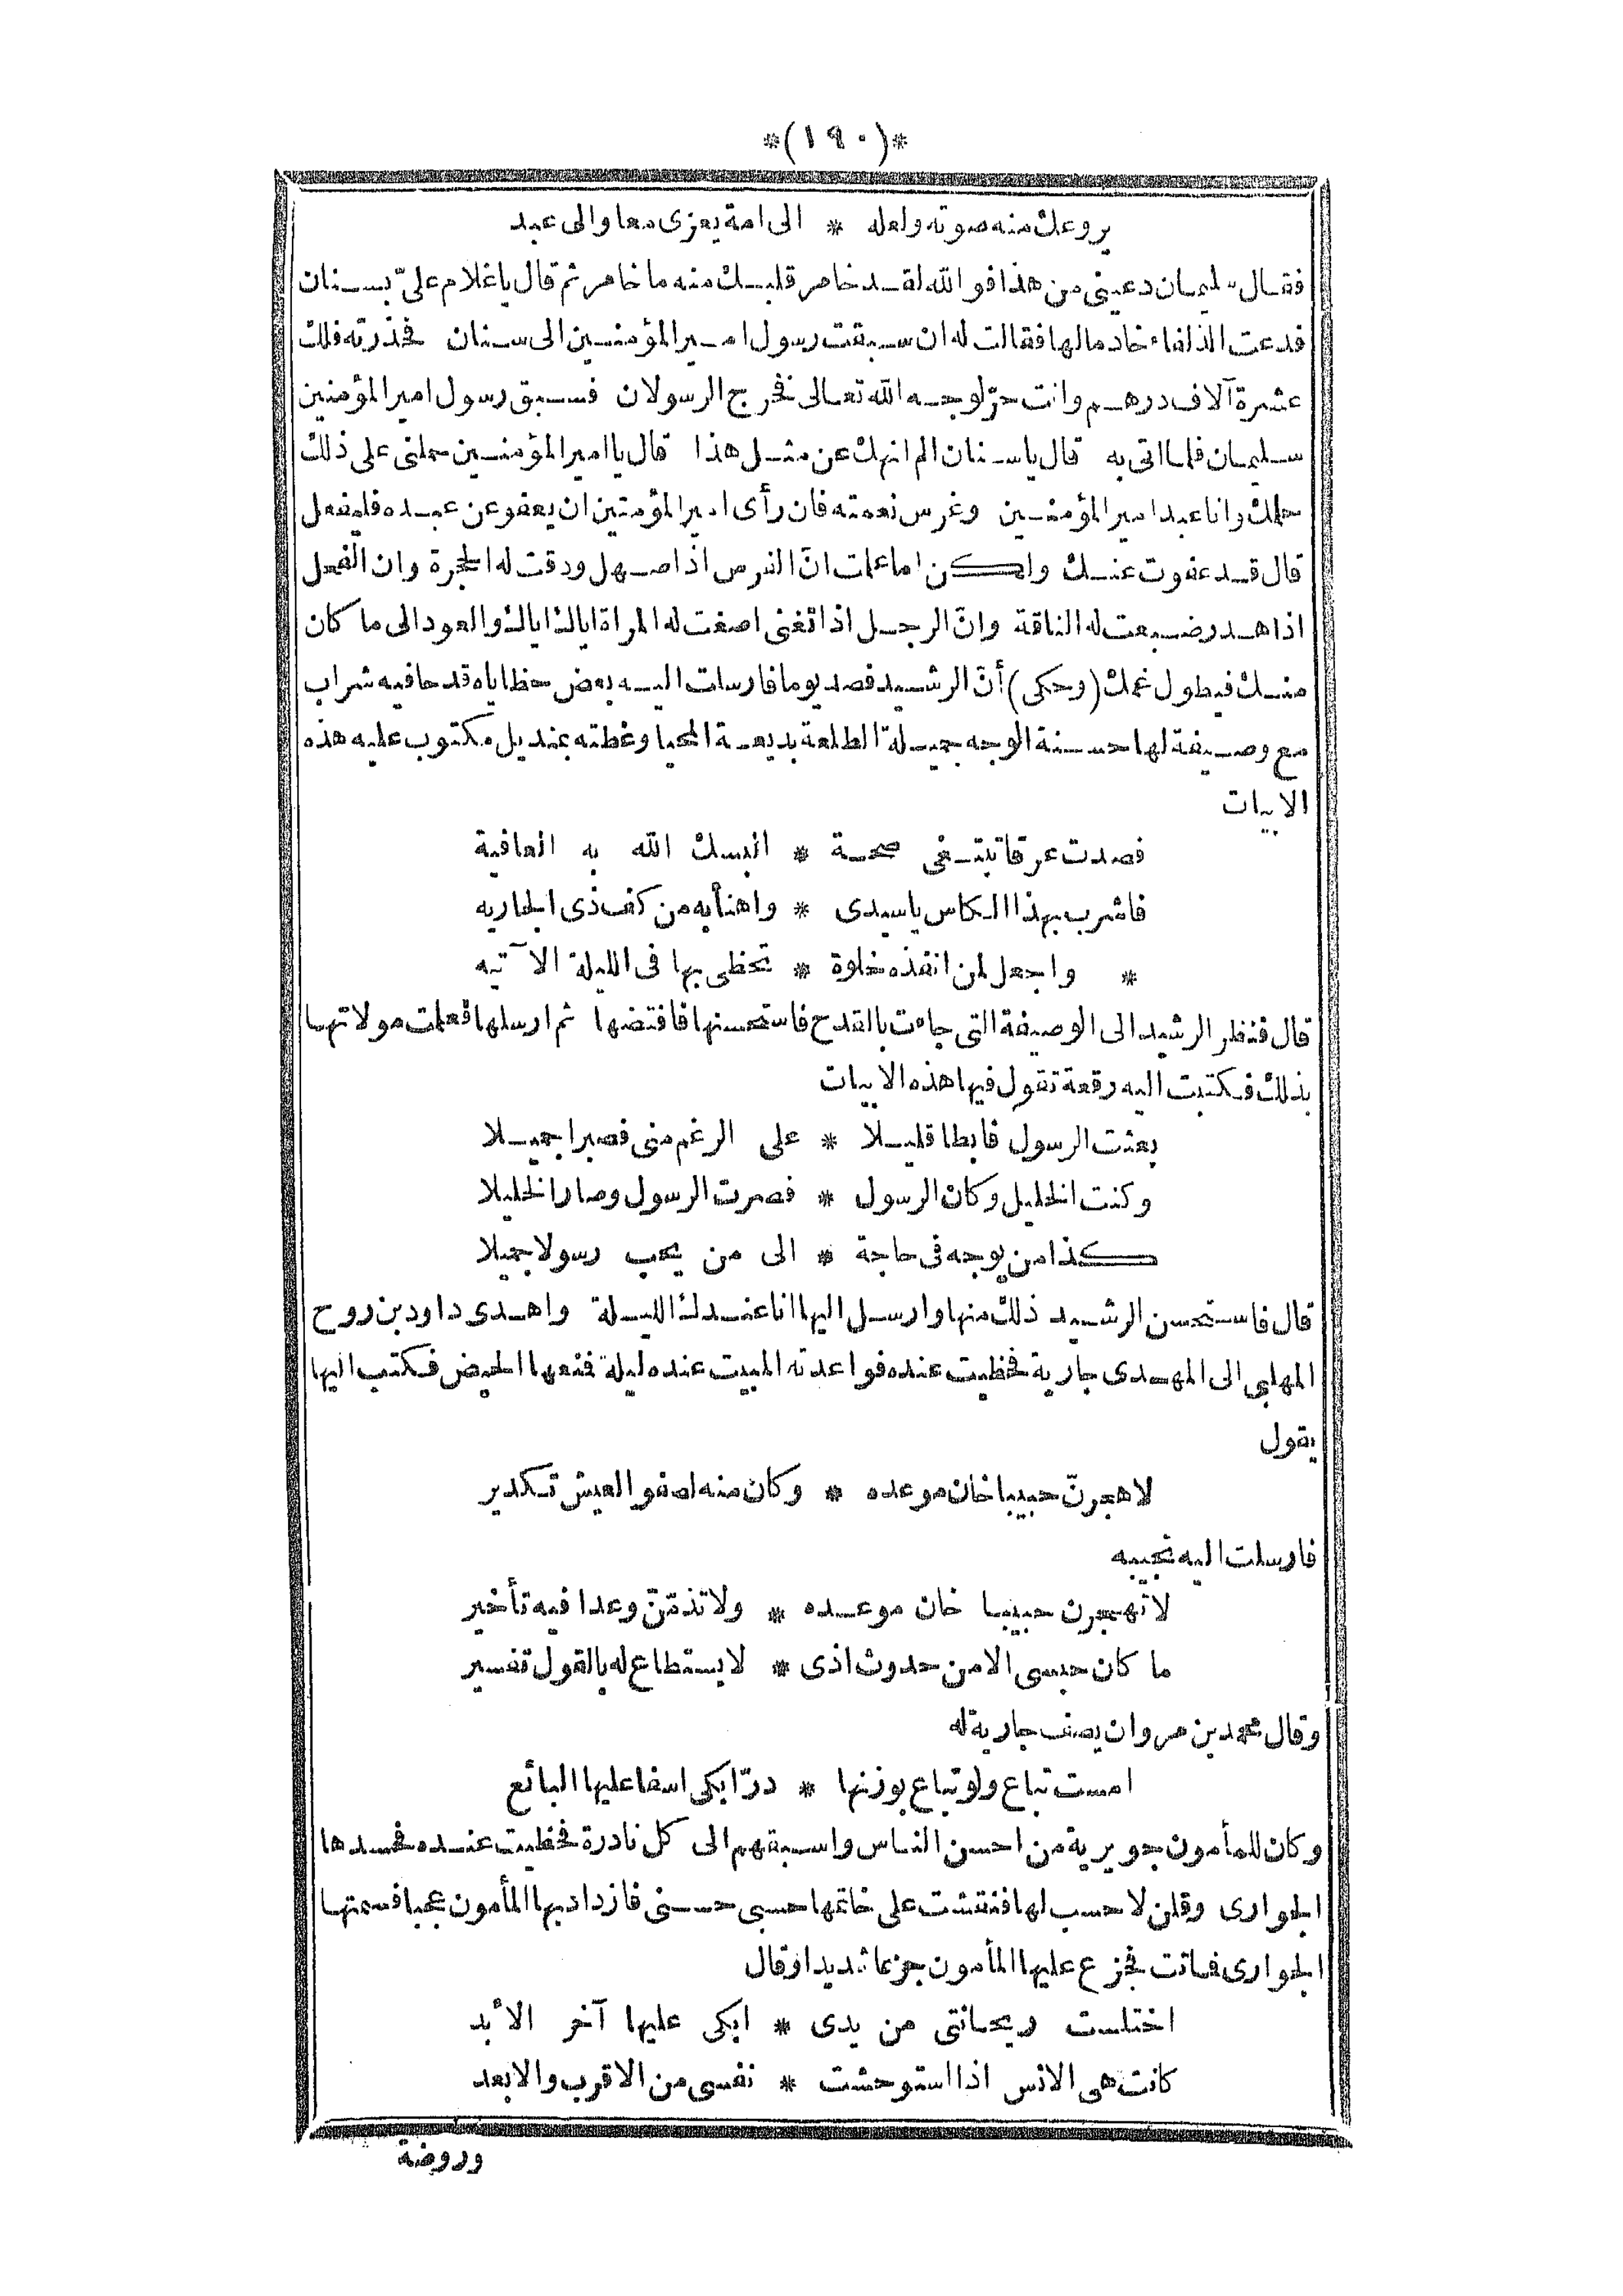 *(١٩٠)*
يروعك منه صوته ولعله * الى امة يعزى معا والى عبد
فقال سليمان دعينى من هذا فوالله لقد خامر قلبك منه ما خامر ثم قال يا غلام علىّ بسنان
فدعت الذلفاء خادما لها فقالت له ان سبقت رسول امير المؤمنين الى سنان فحذرته فلك
عشرة آلاف درهم وانت حرّ لوجه الله تعالى فخرج الرسولان فسبق رسول امير المؤمنين
سليمان فلما اتى به قال يا سنان الم انهك عن مثل هذا قال يا امير المؤمنين حملنى على ذلك
حلمك وانا عبد امير المؤمنين وغرس نعمته فان رأى امير المؤمنين ان يعفو عن عبده فليفعل
قال قد عفوت عنك ولكن اما علمت انّ الفرس اذا صهل ودقت له الحجرة وان الفحل
اذا هدر ضبعت له الناقة وانّ الرجل اذا تغنى اصغت له المراة اياك اياك والعود الى ما كان
منك فيطول غمك (وحكى) أنّ الرشيد فصد يوما فارسلت اليه بعض حظاياه قدحا فيه شراب
مع وصيفة لها حسنة الوجه جميلة الطلعة بديعة المحيا وغطته بمنديل مكتوب عليه هذه
الابيات
فصدت عرقا تبتغى صحة * البسك الله به العافية
فاشرب بهذا الكاس يا سيدى * واهنأ به من كف ذى الجاريه
* واجعل لمن انفذه خلوة * تحظى بها فى الليلة الآتيه
قال فنظر الرشيد الى الوصيفة التى جاءت بالقدح فاستحسنها فافتضها ثم ارسلها فعلمت مولاتها
بذلك فكتبت اليه رقعة تقول فيها هذه الابيات
بعثت الرسول فابطا قليلا * على الرغم منى فصبرا جميلا
وكنت الخليل وكان الرسول * فصرت الرسول وصار الخليلا
كذا من يوجه فى حاجة * الى من يحب رسولا جميلا
قال فاستحسن الرشيد ذلك منها وارسل اليها انا عندك الليلة واهدى داود بن روح
المهلبى الى المهدى جارية فحظيت عنده فواعدته المبيت عنده ليلة فمنعها الحيض فكتب اليها
يقول
لاهجرنّ حبيبا خان موعده * وكان منه لصفو العيش تكدير
فارسلت اليه تجيبه
لا تهجرن حبيبا خان موعده * ولا تذمّنّ وعدا فيه تأخير
ما كان حبسى الا من حدوث اذى * لا يستطاع له بالقول تفسير
وقال محمد بن مروان يصف جارية له
امست تباع ولو تباع بوزنها * درّا بكى اسفا عليها البائع
وكان للمأمون جويرية من احسن الناس واسبقهم الى كل نادرة فحظيت عنده فحسدها
الجوارى وقلن لا حسب لها فنقشت على خاتمها حسبى حسنى فازداد بها المأمون عجبا فسمتها
الجوارى فماتت فجزع عليها المأمون جزعا شديدا وقال
اختلست ريحانتى من يدى * ابكى عليها آخر الأبد
كانت هى الانس اذا استوحشت * نفسى من الاقرب والابعد
وروضة